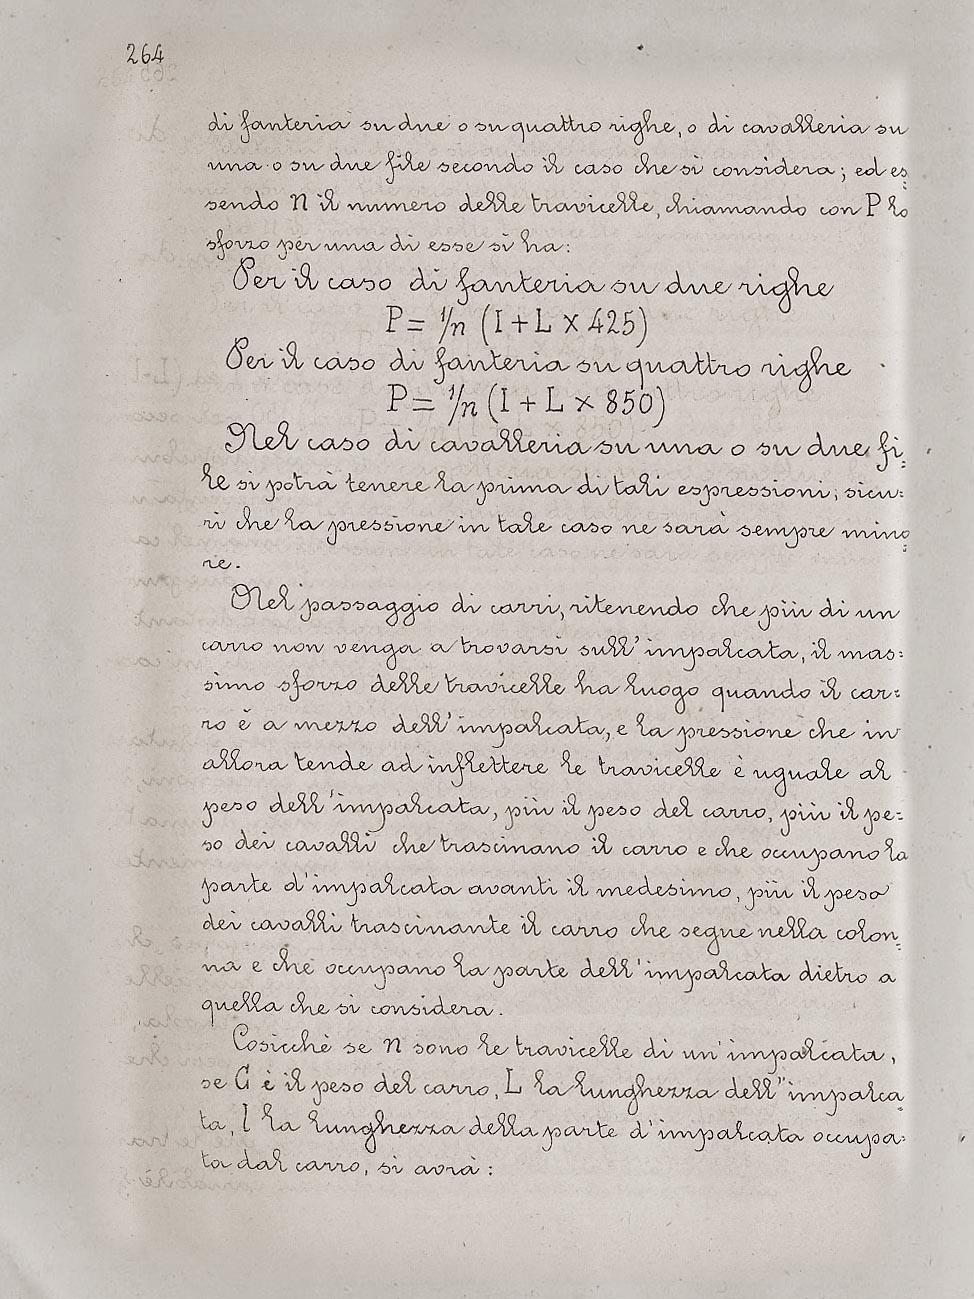 264
di fanteria su due o su quattro righe, o di cavalleria su
una o su due file secondo il caso che si considera; ed es=
sendo n il numero delle travicelle, chiamando con P lo
sforzo per una di esse si ha:
Per il caso di fanteria su due righe
P = 1/n (I + L × 425)
Per il caso di fanteria su quattro righe
P = 1/n (I + L × 850)
Nel caso di cavalleria su una o su due fi=
le si potrà tenere la prima di tali espressioni; sicu=
ri che la pressione in tale caso ne sarà sempre mino=
re.
Nel passaggio di carri, ritenendo che più di un
carro non venga a trovarsi sull'impalcata, il mas=
simo sforzo delle travicelle ha luogo quando il car=
ro è a mezzo dell'impalcata, e la pressione che in
allora tende ad inflettere le travicelle è uguale al
peso dell'impalcata, più il peso del carro, più il pe=
so dei cavalli che trascinano il carro e che occupano la
parte d'impalcata avanti il medesimo, più il peso
dei cavalli trascinante il carro che segue nella colon=
na e che occupano la parte dell'impalcata dietro a
quella che si considera.
Cosicchè se n sono le travicelle di un'impalcata,
se C è il peso del carro, L la lunghezza dell'impalca=
ta, l la lunghezza della parte d'impalcata occupa=
ta dal carro, si avrà: